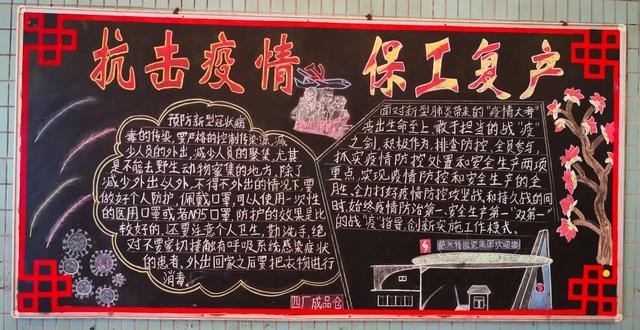 抗击疫情 保工复产
预防新型冠状病
毒的传染,要严格的控制传染源,减
少人员的外出,减少人员的聚集,尤其
是不能去野生动物家集的地方,除了
减少外出以外,不得不外出的情况下,要
做好个人防护,佩戴口罩,可以使用一次性
的医用口罩或者N95口罩,防护的效果是比
较好的,还要注意个人卫生,勤洗手,绝
对不要密切接触有呼吸系统感染症状
的患者,外出回家之后要把衣物进行
消毒。
面对新型肺炎带来的“疫情大考”
亮出生命至上、敢于担当的战“疫”
之剑,积极作为,排查防控,全员参与,
抓实疫情防控处置和安全生产两项
重点,实现疫情防控和安全生产的全
胜,全力打好疫情防控攻坚战和持久战的同
时,始终疫情防治第一、安全生产第一“双第一”
的战“疫”指导,创新实施工作模式。
萨米特陶瓷集团欢迎您
四厂成品仓